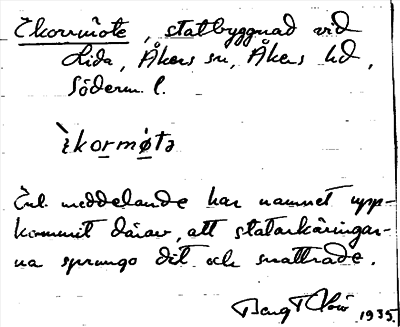 Ekormöte, statbyggnad vid
Lida, Åkers sn, Åkers hd,
Söderm. l.
èkormø̀tə
Enl. meddelande har namnet upp-
kommit därav, att statarkäringar-
na sprungo dit och snattrade.
Bengt 1935.